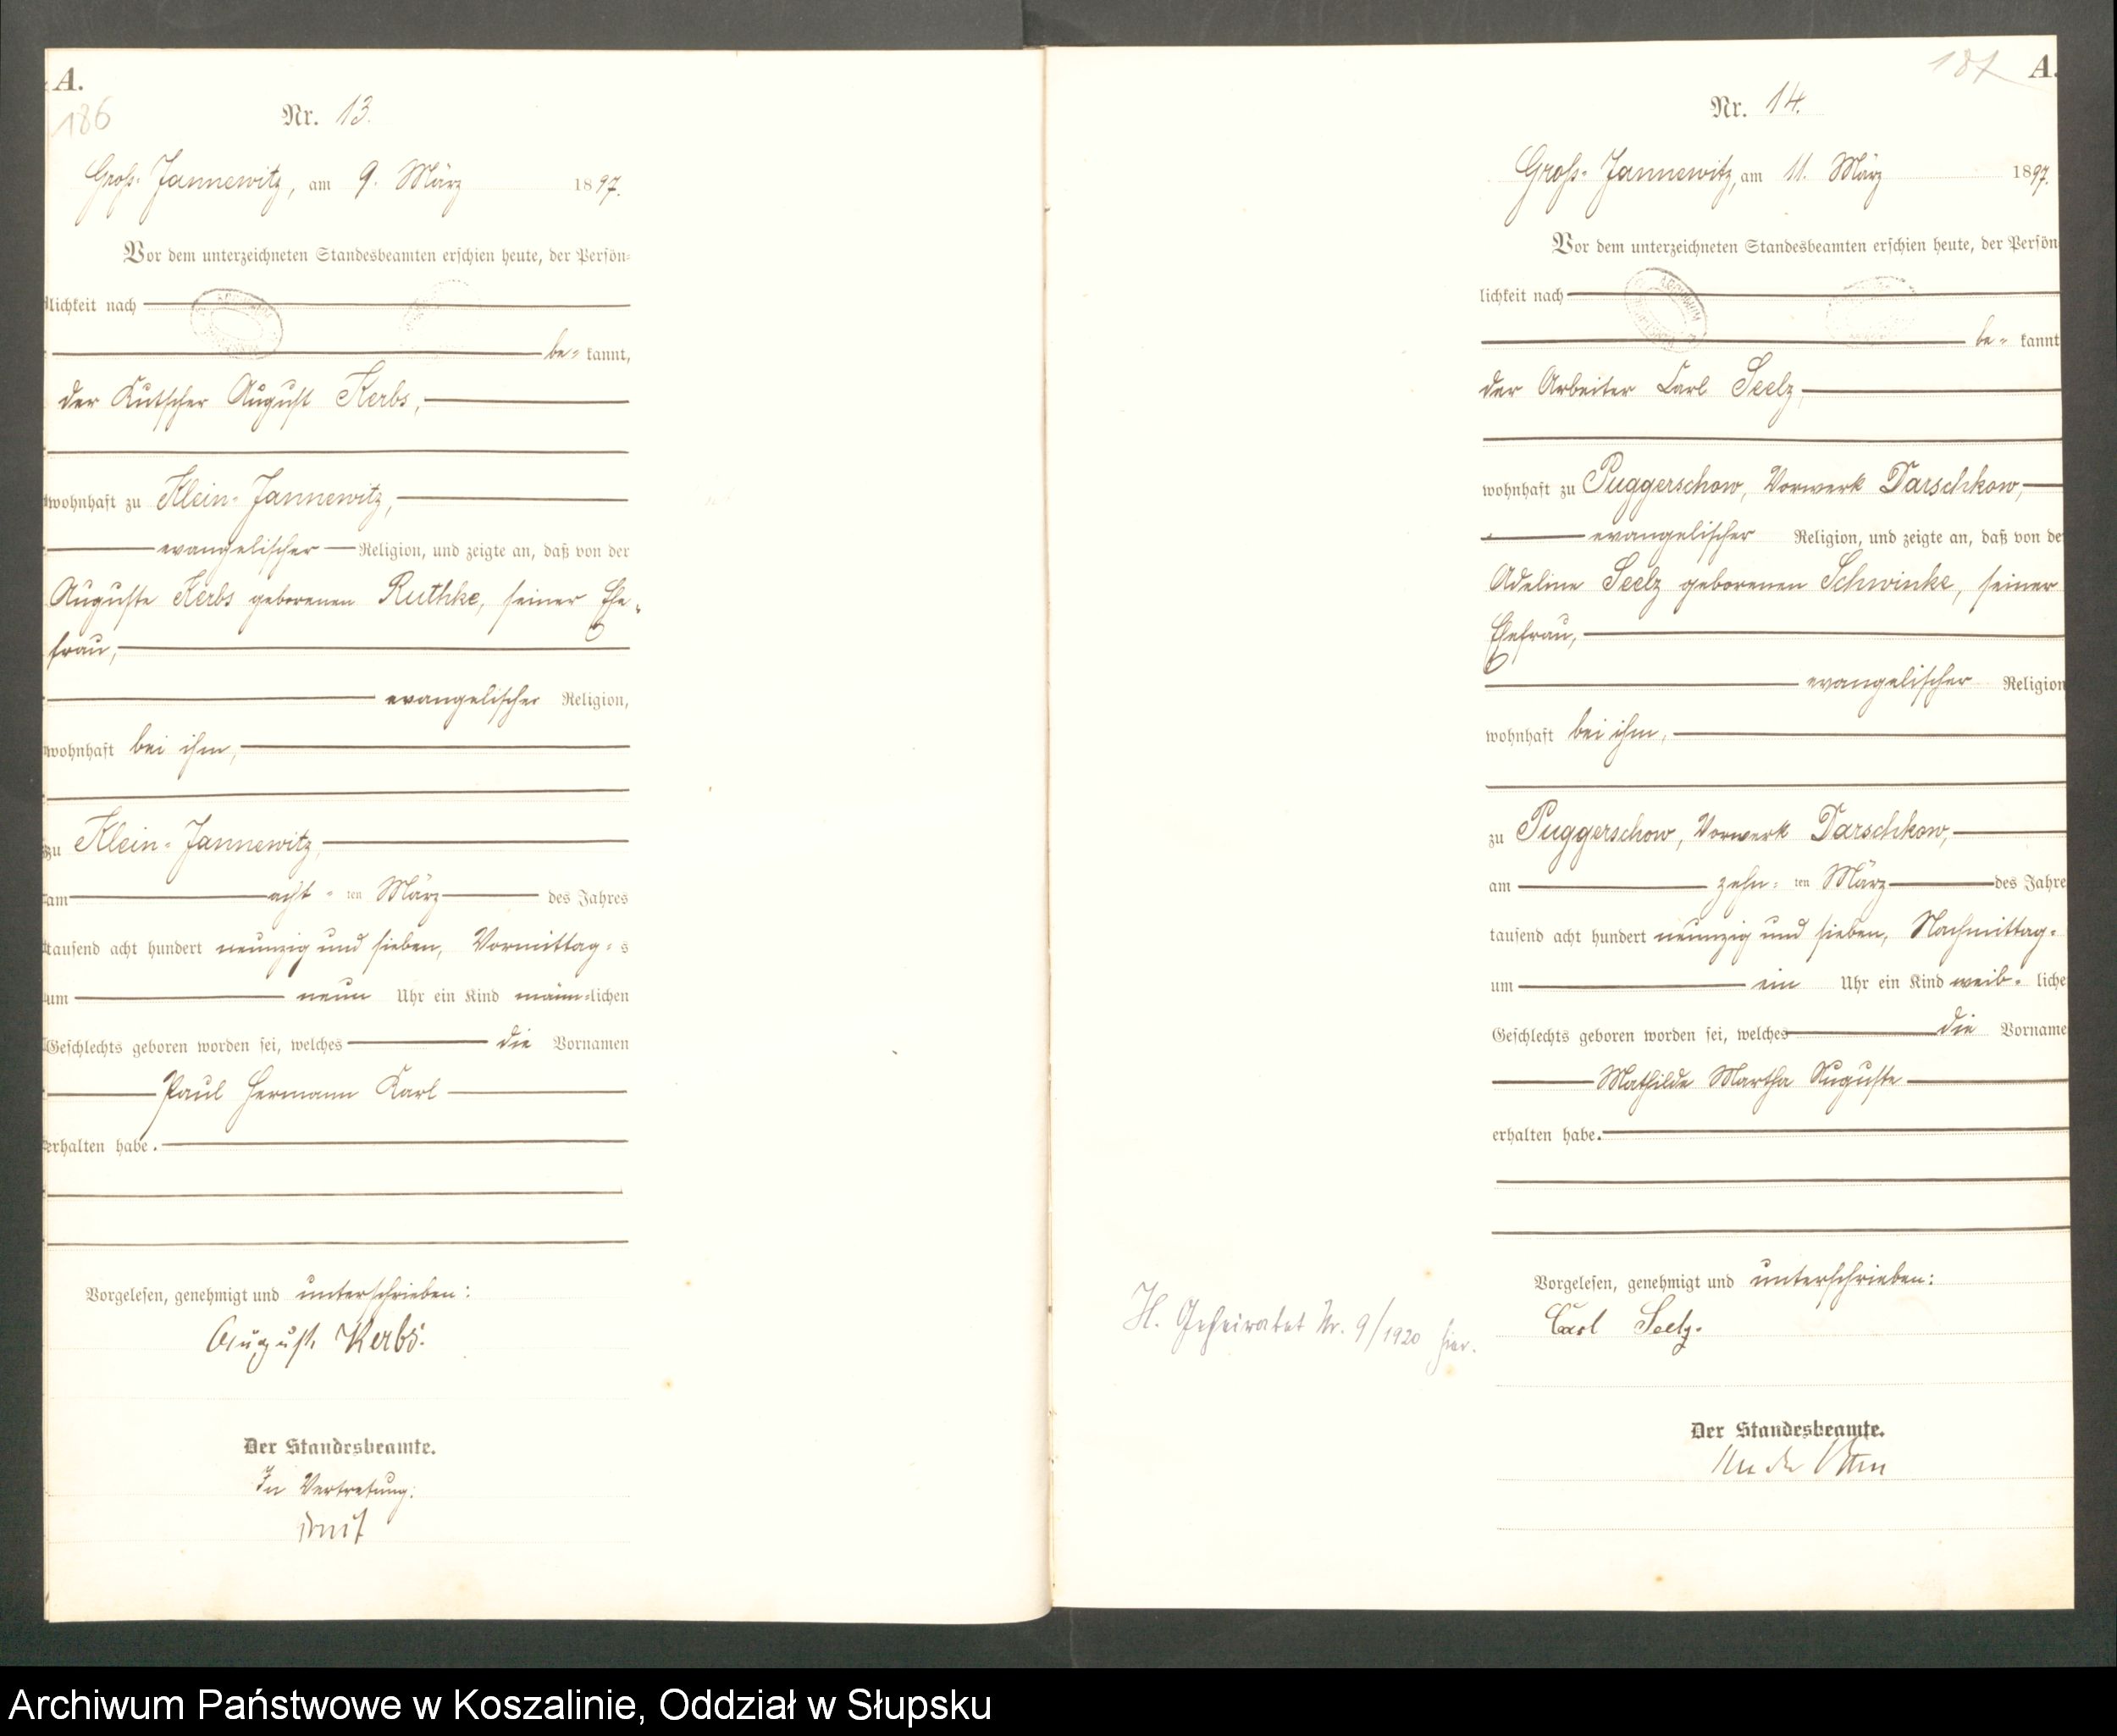 A.
186
Nr. 13.
Groß-Jannewitz, am 9. März 1897.
Vor dem unterzeichneten Standesbeamten erschien heute, der Persön-
lichkeit nach
be- kannt,
der Kutscher August Kerbs,
wohnhaft zu Klein-Jannewitz,
evangelischer Religion, und zeigte an, daß von der
Auguste Kerbs geborenen Ruthke, seiner Ehe-
frau,
evangelischer Religion,
wohnhaft bei ihm,
zu Klein-Jannewitz,
am acht-ten März des Jahres
tausend acht hundert neunzig und sieben, Vormittag-s
um neun Uhr ein Kind männ-lichen
Geschlechts geboren worden sei, welches die Vornamen
Paul Hermann Karl
erhalten habe.
Vorgelesen, genehmigt und unterschrieben:
August Kerbs.
Der Standesbeamte.
In Vertretung:
187
A.
Nr. 14.
Groß-Jannewitz, am 11. März 1897.
Vor dem unterzeichneten Standesbeamten erschien heute, der Persön
lichkeit nach
be- kannt
der Arbeiter Carl Seelz,
wohnhaft zu Puggerschow, Vorwerk Darschkow,
evangelischer Religion, und zeigte an, daß von de
Adeline Seelz geborenen Schwinke, seiner
Ehefrau,
evangelischer Religion
wohnhaft bei ihm,
zu Puggerschow, Vorwerk Darschkow,
am zehn-ten März des Jahre
tausend acht hundert neunzig und sieben, Nachmittag-
um ein Uhr ein Kind weib-liche
Geschlechts geboren worden sei, welches die Vorname
Mathilde Martha Auguste
erhalten habe.
H. Geheiratet Nr. 9/1920 hier.
Vorgelesen, genehmigt und unterschrieben:
Carl Seelz.
Der Standesbeamte.
Archiwum Państwowe w Koszalinie, Oddział w Słupsku